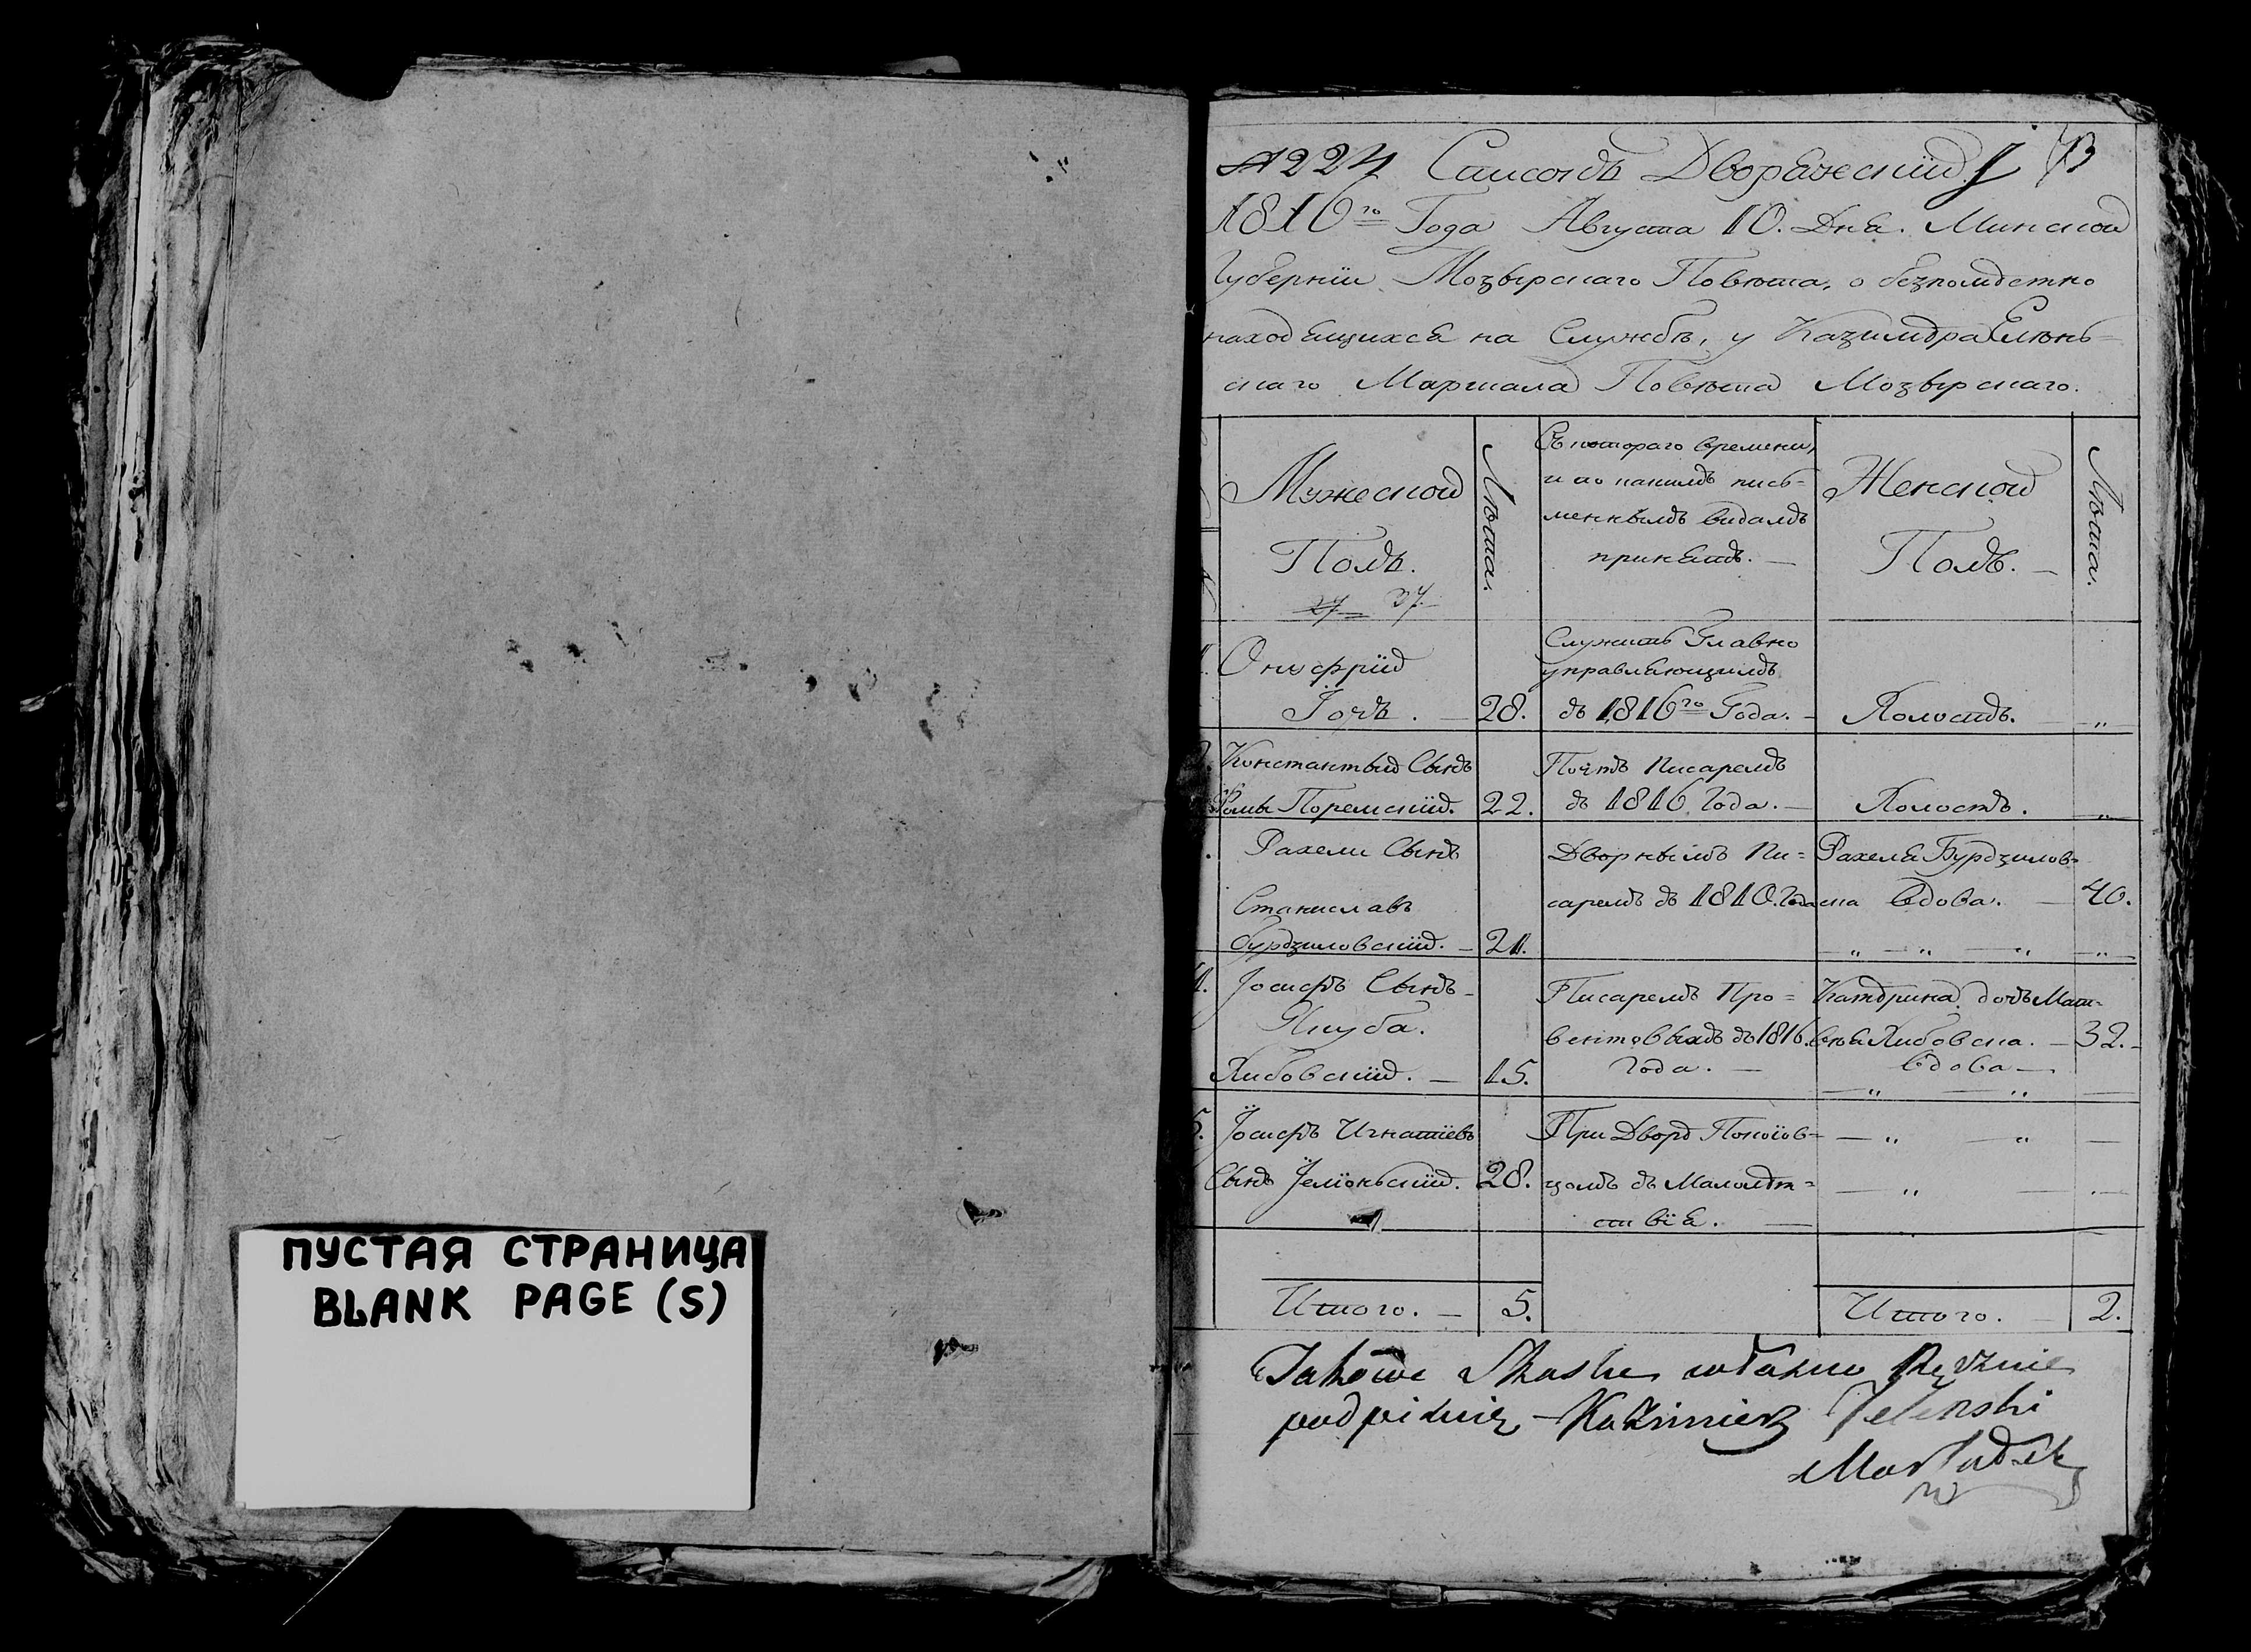 ПУСТАЯ СТРАНИЦА
BLANK PAGE (S)
№ 224 Списокъ Дворянскій 73
1816го Года Августа 10. Дня. Минской
Губерніи Мозырскаго Повѣта, о безпомѣстно
находящихся на Службѣ, у Казимѣра Елѣнь=
скаго Маршала Повѣта Мозырскаго.
Мужеской
Полъ.
27 37
Лѣта.
Съ котораго времени,
и по какимъ пись=
меннымъ видамъ
принятъ. —
Женской
Полъ. —
Лѣта.
1. Онуфрій
28. съ 1816го Года. — Холостъ. — „
Служитъ Главно
управляющимъ
Константый Сынъ
Фомы Поремскій. 22.
Почтъ Писаремъ
съ 1816 Года. —
Холостъ. „
Рахели Сынъ
Станиславъ
Бурдзиловскій. — 21.
Дворнымъ Пи=
саремъ съ 1810. Года
Рахеля Бурдзилов=
ска вдова. — 40.
„ — „ — „ — „
4. Іосифъ Сынъ
Якуба.
Яковскій. — 15.
Писаремъ Про=
вентовыхъ съ 1816.
Года. —
Катѣрина дочь Мат=
вѣя — 32.
вдова —
— „ — „ —
5. Іосифъ Игнатіевъ
Сынъ Іеліоньскій. 28.
При Дворѣ Покоіов=
цомъ съ Малолѣт=
ствія. —
— „ — „ —
— „ — „ —
Итого. — 5.
Итого. — 2.
Takowe Skaskę własno Ręcznie
podpisuię — Kazimierz Jelenski
Marszałek